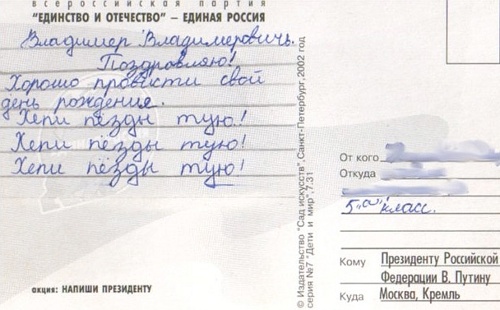 всероссийская партия
"ЕДИНСТВО И ОТЕЧЕСТВО" – ЕДИНАЯ РОССИЯ
Владимер Владимеровичь.
Поздровляю!
Хорошо провисти свой
день рождения.
Хепи пёзды тую!
Хепи пёзды тую!
Хепи пёзды тую!
акция: НАПИШИ ПРЕЗИДЕНТУ
© Издательство "Сад искусств", Санкт-Петербург, 2002 год
серия №7 "Дети и мир", 7.31
От кого
Откуда
5 "а" класс.
Кому Президенту Российской
Федерации В. Путину
Куда Москва, Кремль